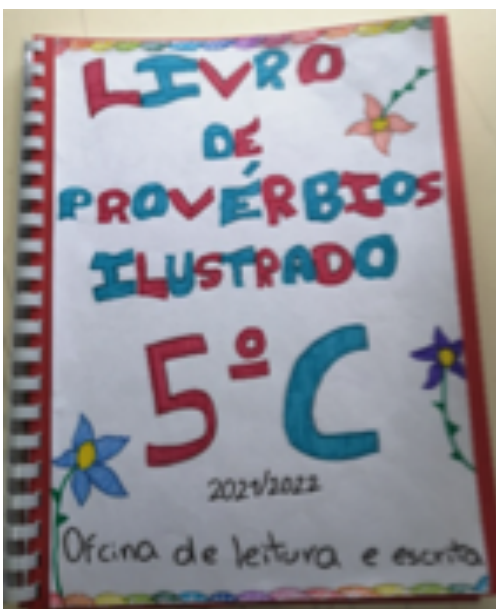 LIVRO
DE
PROVÉRBIOS
ILUSTRADO
5º C
2021/2022
Oficina de leitura e escrita